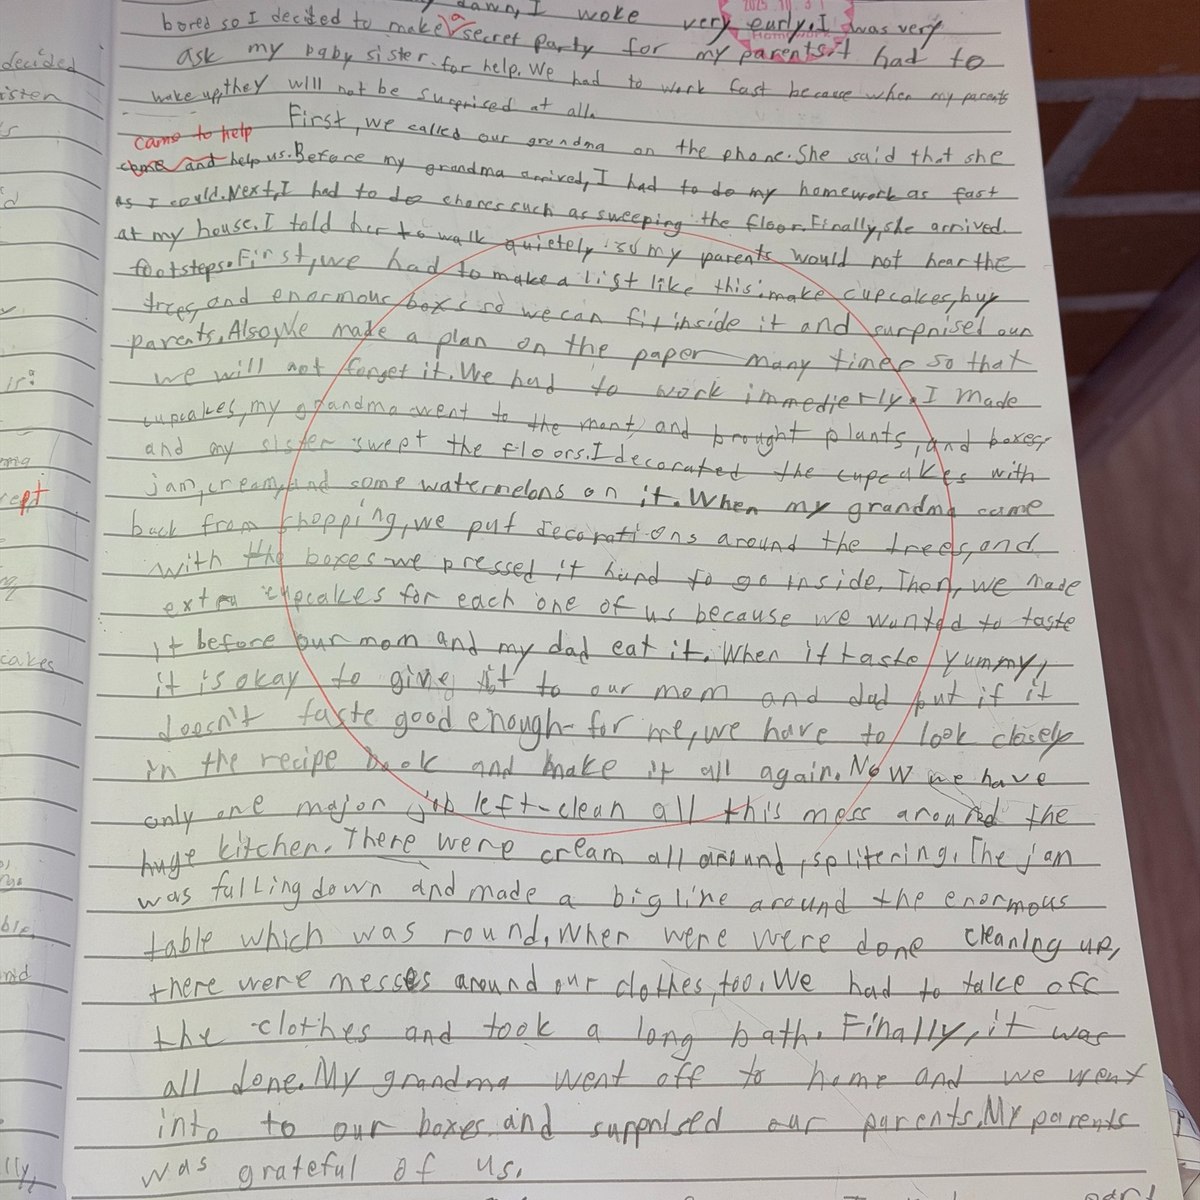 dawn, I woke very early. I was very
bored so I decided to make a secret party for my parents. I had to
ask my baby sister for help. We had to work fast because when my parents
wake up, they will not be surprised at all.
First, we called our grandma on the phone. She said that she
came to help
come and help us. Before my grandma arrived, I had to do my homework as fast
as I could. Next, I had to do chores such as sweeping the floor. Finally, she arrived
at my house. I told her to walk quietely so my parents would not hear the
footsteps. First, we had to make a list like this: make cupcakes, buy
trees, and enormous boxes so we can fit inside it and surprised our
parents. Also, We made a plan on the paper many times so that
we will not forget it. We had to work immedierly. I made
cupcakes, my grandma went to the mart, and brought plants, and boxes,
and my sister swept the floors. I decorated the cupcakes with
jam, cream, and some watermelons on it. When my grandma came
back from shopping, we put decorations around the trees, and
with the boxes we pressed it hard to go inside. Then, we made
extra cupcakes for each one of us because we wanted to taste
it before our mom and my dad eat it. When it taste yummy,
it is okay to give it to our mom and dad but if it
doesn't taste good enough for me, we have to look closely
in the recipe book and make it all again. Now we have
only one major job left-clean all this mess around the
huge kitchen. There were cream all around, splitering. The jam
was falling down and made a big line around the enormous
table which was round. When were were done cleaning up,
there were messes around our clothes, too. We had to take off
the clothes and took a long bath. Finally, it was
all done. My grandma went off to home and we went
into to our boxes and surprised our parents. My parents
was grateful of us.
decided
cakes